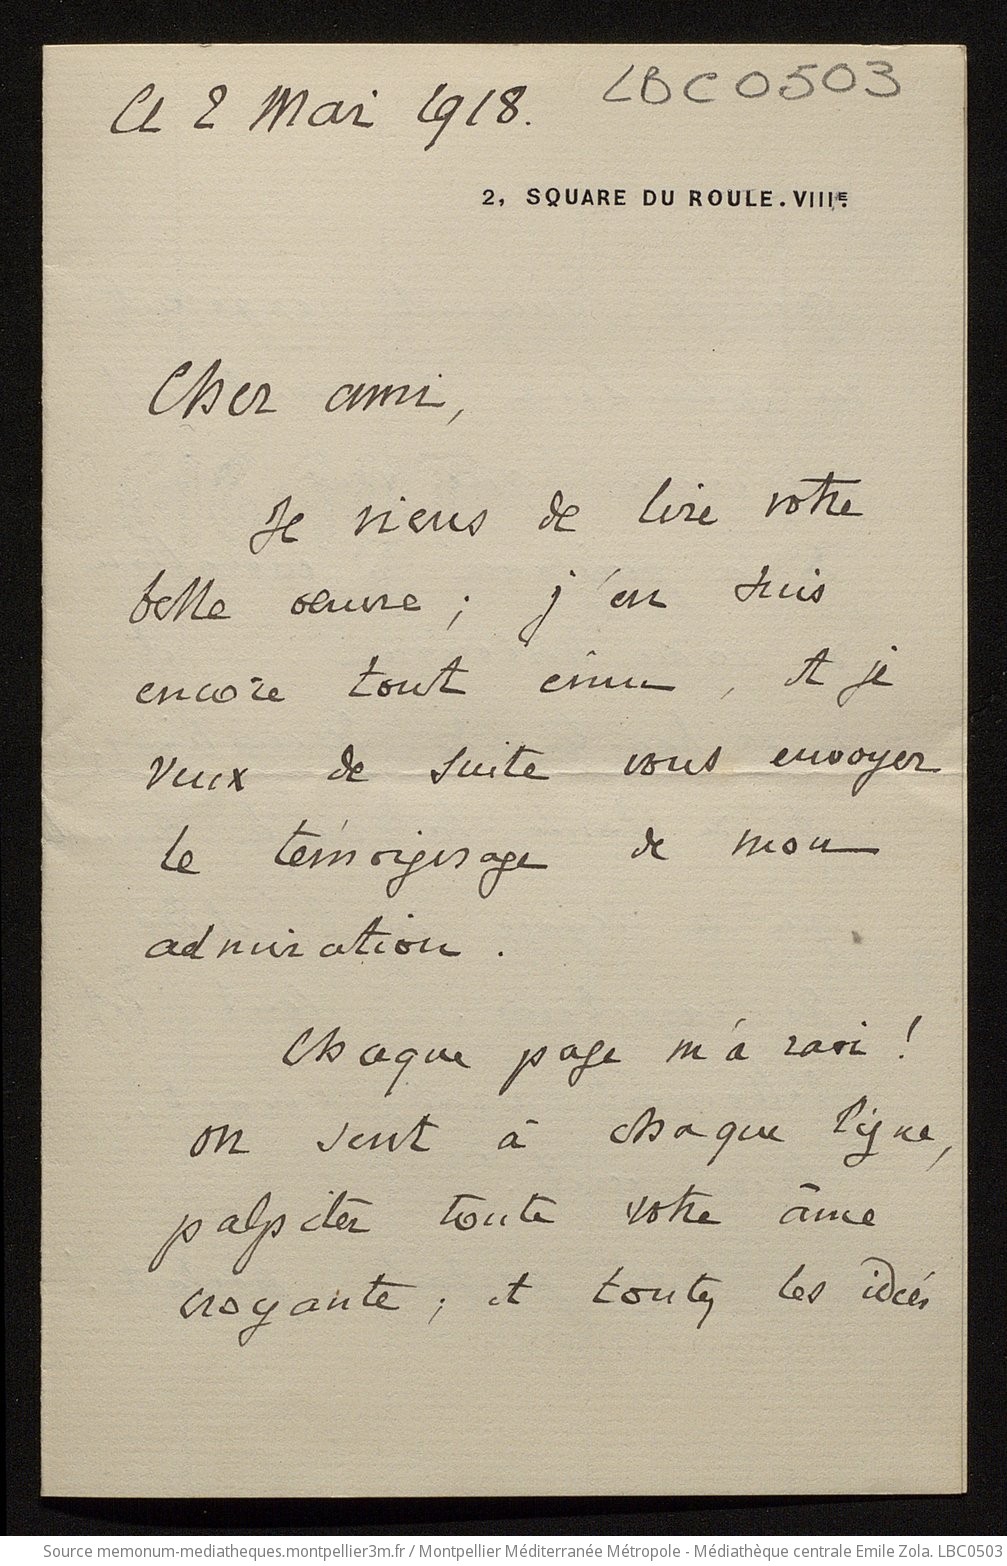 Ce 2 Mai 1918.
LBC0503
2, SQUARE DU ROULE. VIIIE.
Cher ami,
Je viens de lire votre
belle œuvre ; j'en suis
encore tout ému, et je
veux de suite vous envoyer
le témoignage de mon
admiration.
Chaque page m'a ravi !
on sent à chaque ligne,
palpiter toute votre âme
croyante ; et toutes les idées
Source memonum-mediatheques.montpellier3m.fr / Montpellier Méditerranée Métropole - Médiathèque centrale Emile Zola. LBC0503